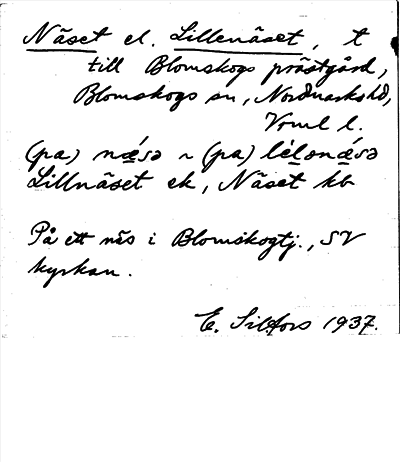 Näset el. Lillenäset, t
till Blomskogs prästgård,
Blomskogs sn, Nordmarks hd,
Vrml l.
(pa) nǽsə ~ (pa) lélonǽsə
Lillnäset ek, Näset kb
På ett näs i Blomskogtj., SV
kyrkan.
E. Silfors 1937.